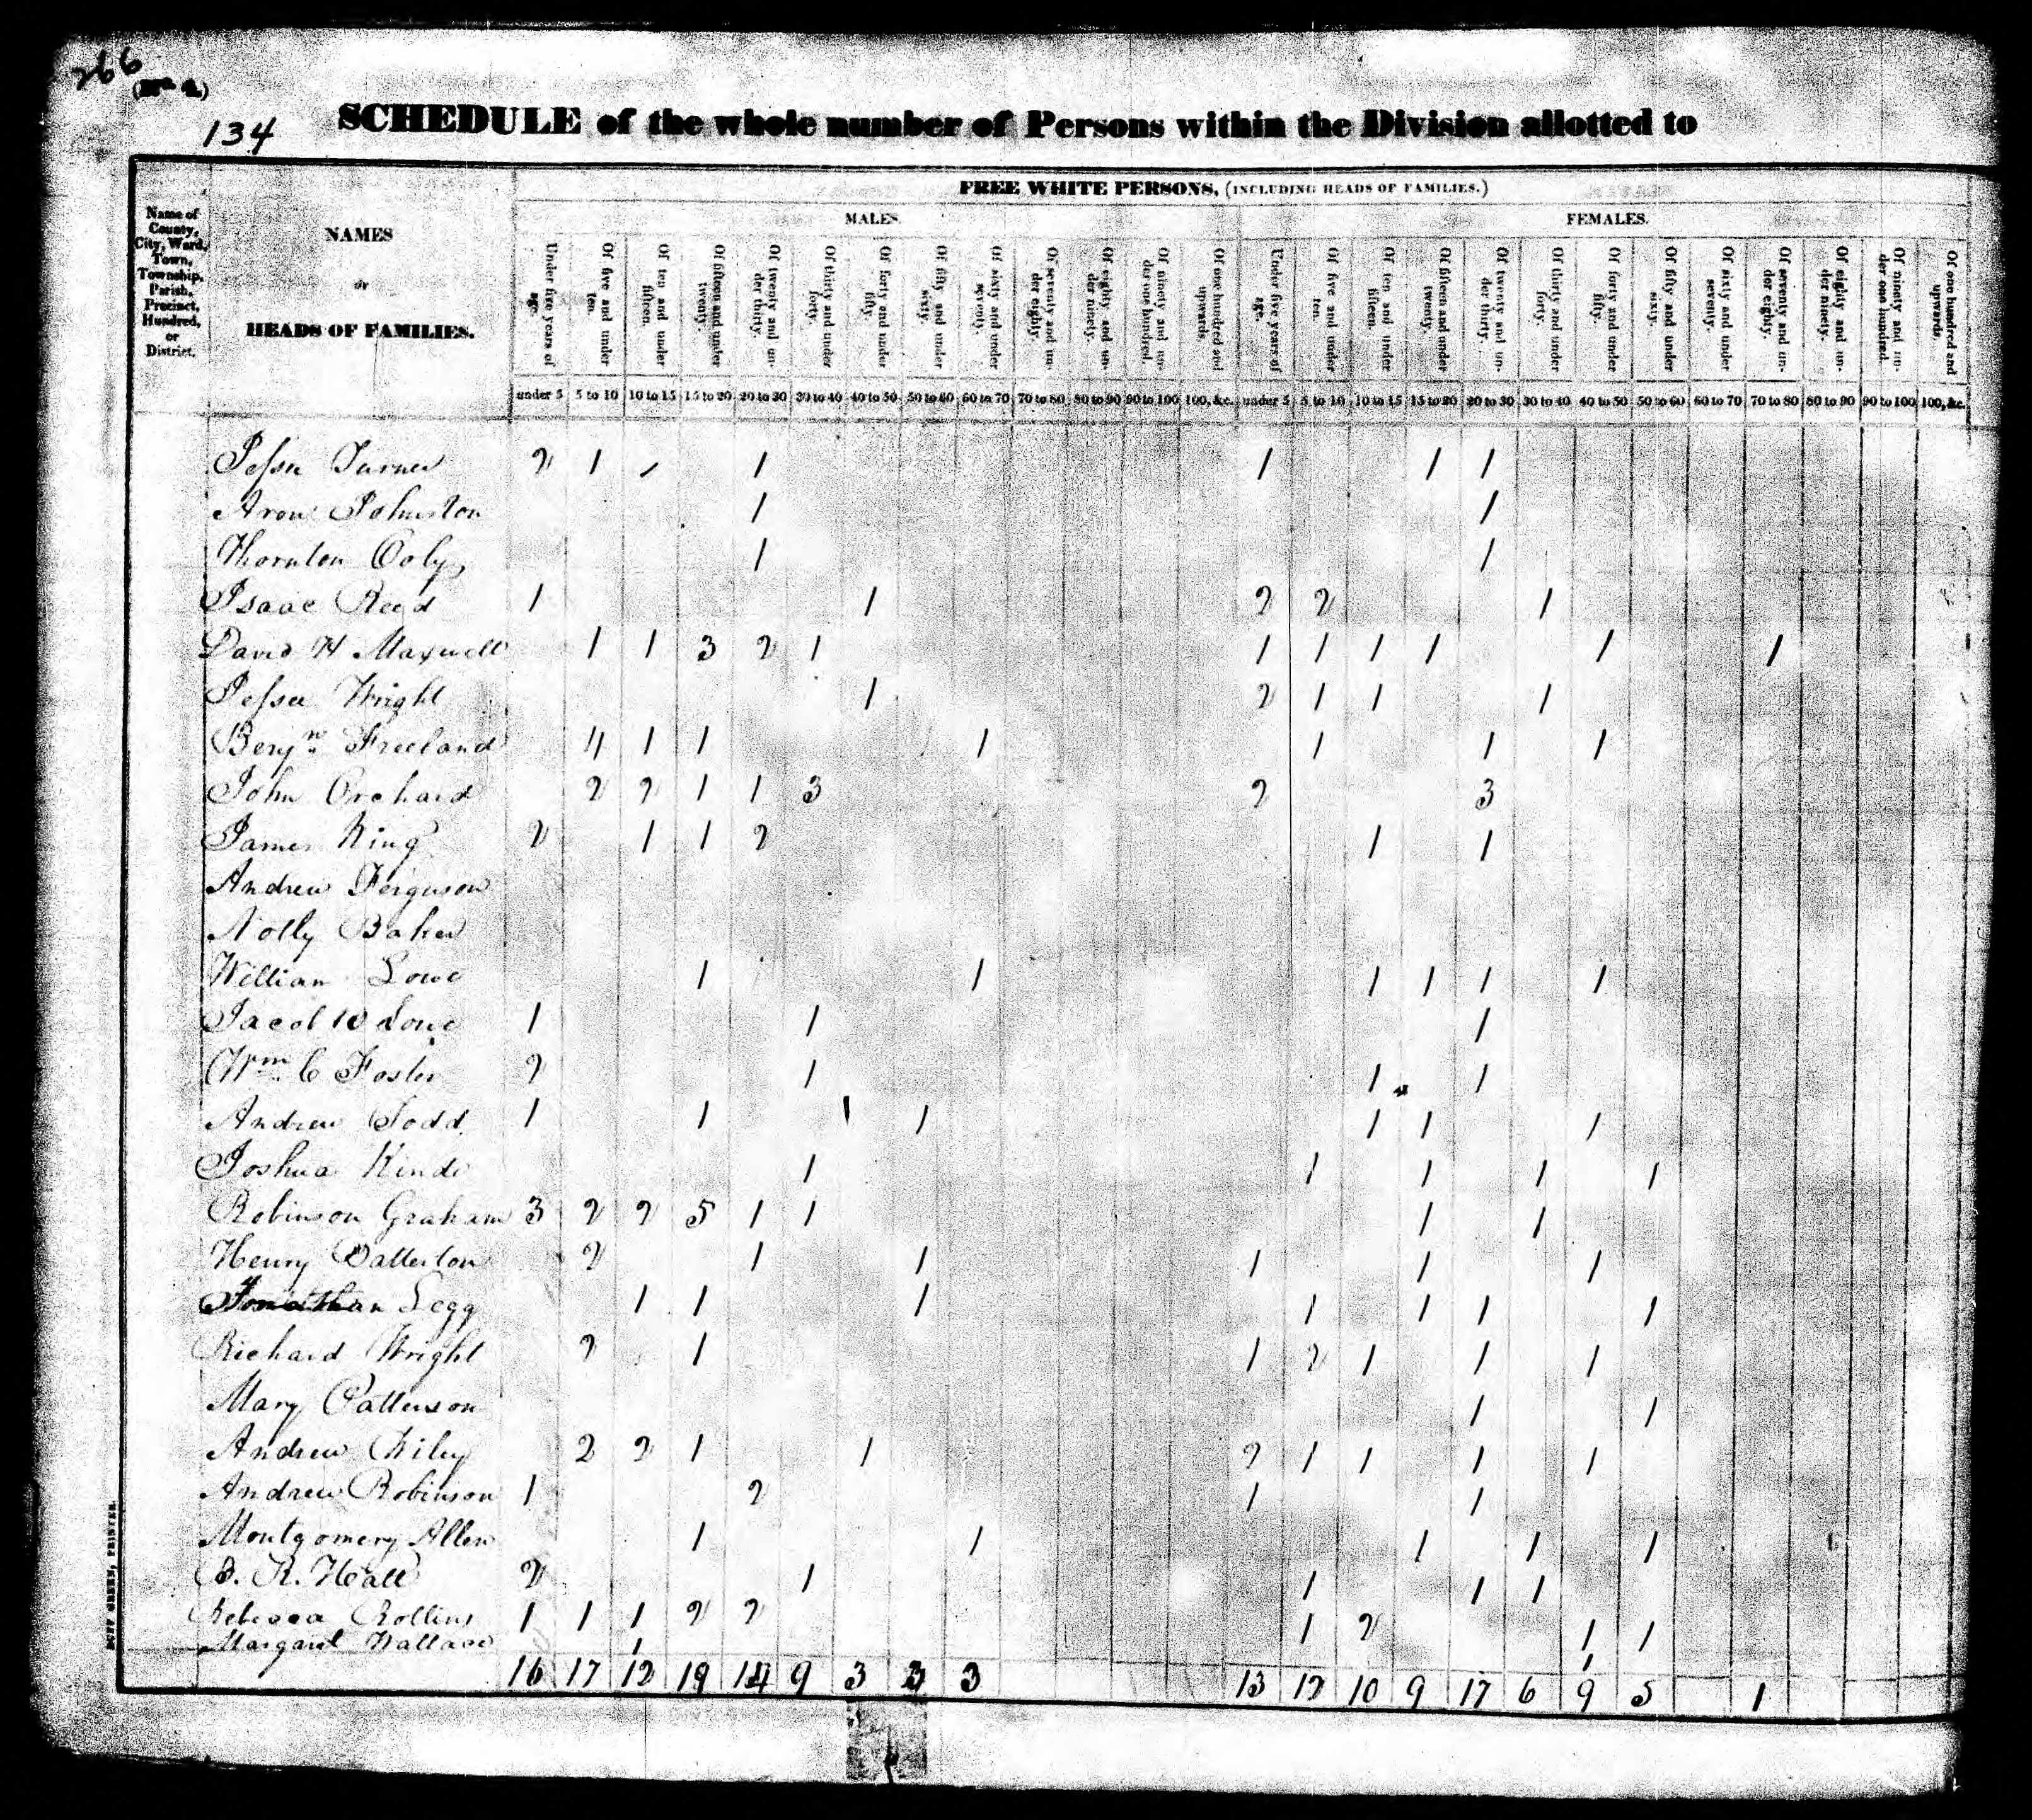 266
(No. 4.)
134
SCHEDULE of the whole number of Persons within the Division allotted to
FREE WHITE PERSONS, (INCLUDING HEADS OF FAMILIES.)
MALES. FEMALES.
Name of County, City, Ward, Town, Township, Parish, Precinct, Hundred, or District.
NAMES
or
HEADS OF FAMILIES.
Under five years of age. Of five and under ten. Of ten and under fifteen. Of fifteen and under twenty. Of twenty and under thirty. Of thirty and under forty. Of forty and under fifty. Of fifty and under sixty. Of sixty and under seventy. Of seventy and under eighty. Of eighty and under ninety. Of ninety and under one hundred. Of one hundred and upwards. Under five years of age. Of five and under ten. Of ten and under fifteen. Of fifteen and under twenty. Of twenty and under thirty. Of thirty and under forty. Of forty and under fifty. Of fifty and under sixty. Of sixty and under seventy. Of seventy and under eighty. Of eighty and under ninety. Of ninety and under one hundred. Of one hundred and upwards.
under 5 5 to 10 10 to 15 15 to 20 20 to 30 30 to 40 40 to 50 50 to 60 60 to 70 70 to 80 80 to 90 90 to 100 100, &c. under 5 5 to 10 10 to 15 15 to 20 20 to 30 30 to 40 40 to 50 50 to 60 60 to 70 70 to 80 80 to 90 90 to 100 100, &c.
Jesse Turner 2 1 1 1 1 1
Aron Johnston 1 1
Thornton 1 1
Isaac Reed 1 1 2 2 1
David H Maxwell 1 1 3 2 1 1 1 1 1 1 1
Jesse Wright 1 2 1 1 1
Benjn Freeland 4 1 1 1 1 1 1
John Orchard 2 2 1 1 3 2 3
James King 2 1 1 2 1 1
Andrew Ferguson
Nolly Baker
William Lowe 1 1 1 1 1 1
Jacob B Lowe 1 1 1
Wm C Foster 2 1 1 1
Andrew Todd 1 1 1 1 1 1 1
Joshua 1 1 1 1 1
Robinson Graham 3 2 2 5 1 1 1 1
Henry Batterton 2 1 1 1 1 1
Jonathan Legg 1 1 1 1 1 1 1
Richard Wright 2 1 1 2 1 1 1
Mary Patterson 1 1
Andrew Wiley 2 2 1 1 2 1 1 1 1
Andrew Robinson 1 2 1 1
Montgomery Allen 1 1 1 1 1
B. R. Hall 2 1 1 1 1
Rebecca Rollins 1 1 1 2 2 1 2 1 1
Margaret Wallace 1 1
16 17 12 19 14 9 3 3 3 13 12 10 9 17 6 9 5 1
DUFF GREEN, PRINTER.